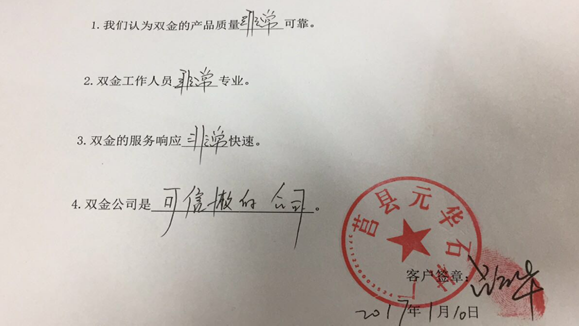 1.我们认为双金的产品质量非常可靠。
2.双金工作人员非常专业。
3.双金的服务响应非常快速。
4.双金公司是可信赖的公司。
莒县元华石
客户签章:
2017年1月10日